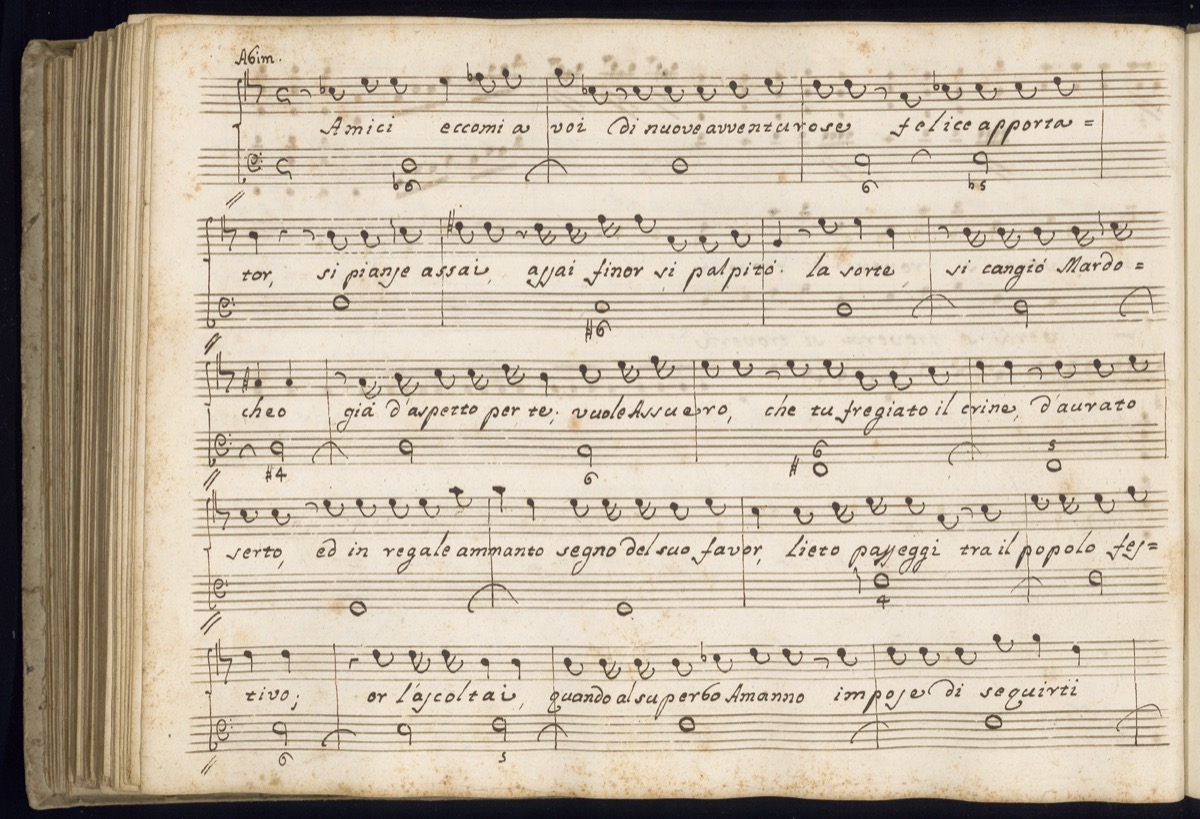 Abim.
Amici eccomi a voi di nuove avventurose felice apporta=
6 6 b5
tor, si pianse assai, assai finor si palpitò. la sorte, si cangiò Mardo=
#6
cheo già d'aspetto per te; vuole Assuero, che tu fregiato il crine, d'aurato
#4 6 6 5
serto, ed in regale ammanto segno del suo favor, lieto passeggi tra il popolo fes=
4
tivo; or l'ascoltai, quando al superbo Amanno impose di seguirti
6 5